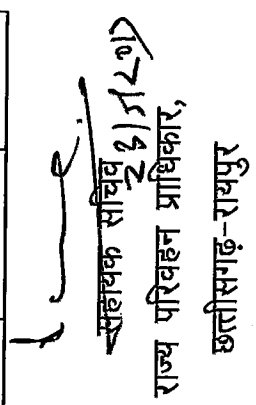 सहायक सचिव
राज्य परिवहन प्राधिकार,
छत्तीसगढ़-रायपुर